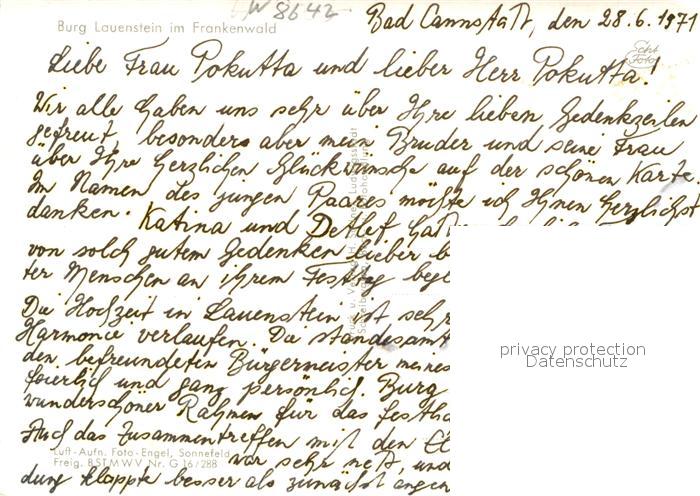 W 8642
Bad Cannstatt, den 28.6.1971
Burg Lauenstein im Frankenwald
Echt Foto
Liebe Frau Pokutta und lieber Herr Pokutta!
Wir alle haben uns sehr über Ihre lieben Gedenkzeilen
gefreut, besonders aber mein Bruder und seine Frau
über Ihre herzlichen Glückwünsche auf der schönen Karte.
Im Namen des jungen Paares möchte ich Ihnen herzlichst
danken. Katina und Detlef
von solch gutem Gedenken lieber
ter Menschen an ihrem Festtag
Die Hochzeit in Lauenstein ist sehr
Harmonie verlaufen. Die standesamt
den befreundeten Bürgermeister meines
feierlich und ganz persönlich. Burg
wunderschöner Rahmen für das
Auch das Zusammentreffen mit den
war sehr nett, und
dung klappte besser als zunächst
Luft-Aufn. Foto-Engel, Sonnefeld
Freig. BSTMWV Nr. G 16/288
privacy protection
Datenschutz